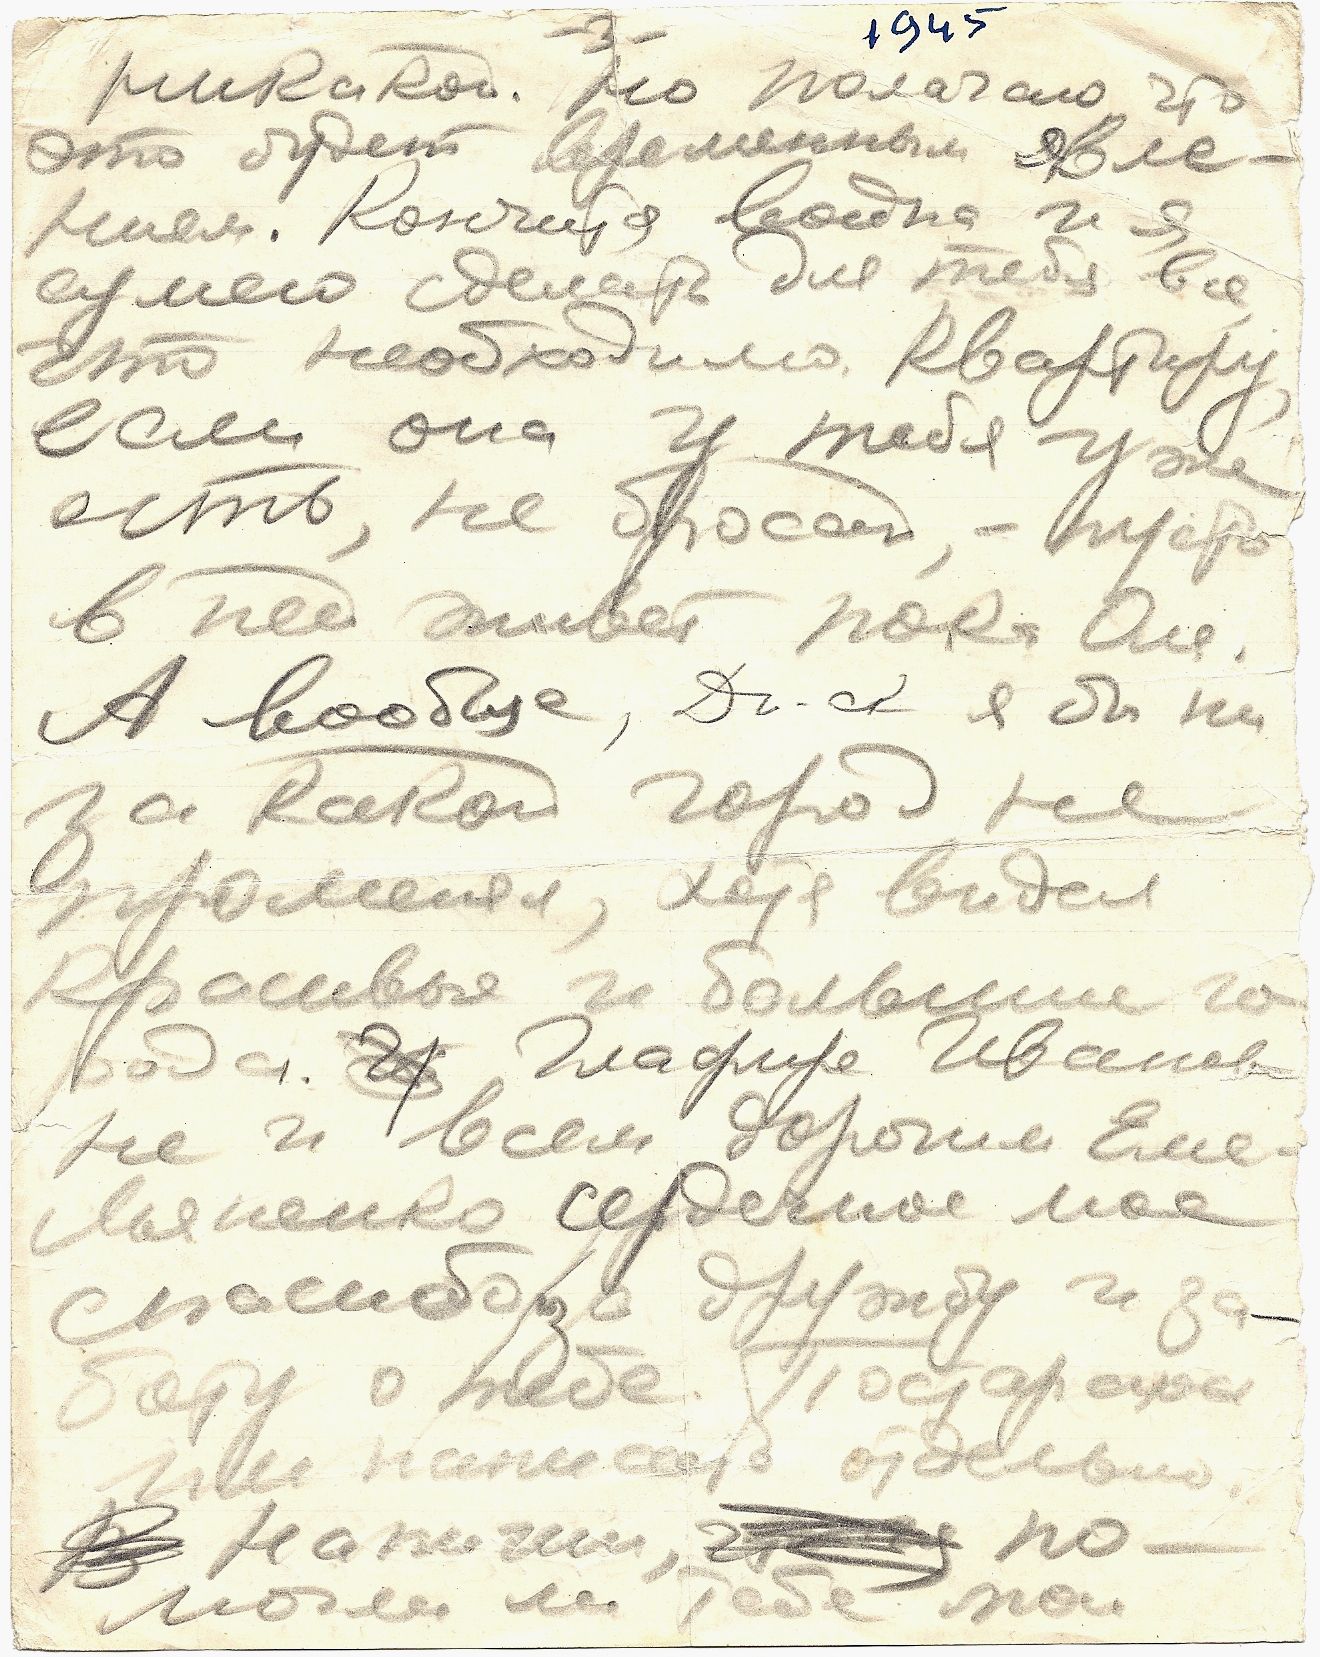 -3-
1945
никакой. Но полагаю что
это будет временным явле-
нием. Кончится война и я
сумею сделать для тебя все
что необходимо. Квартиру,
если она у тебя уже
есть, не бросай, - пусто
в ней живет пока Оля.
А вообще, Дн-ск я бы ни
за какой город не
променял, хотя видел
красивые и большие го
рода. Глафире Иванов-
не и всем дорогим Еме-
льяненко сердечное мое
спасибо за дружбу и за-
боту о тебе. Постараюсь
им написать отдельно.
Напиши, по-
могли ли тебе мои